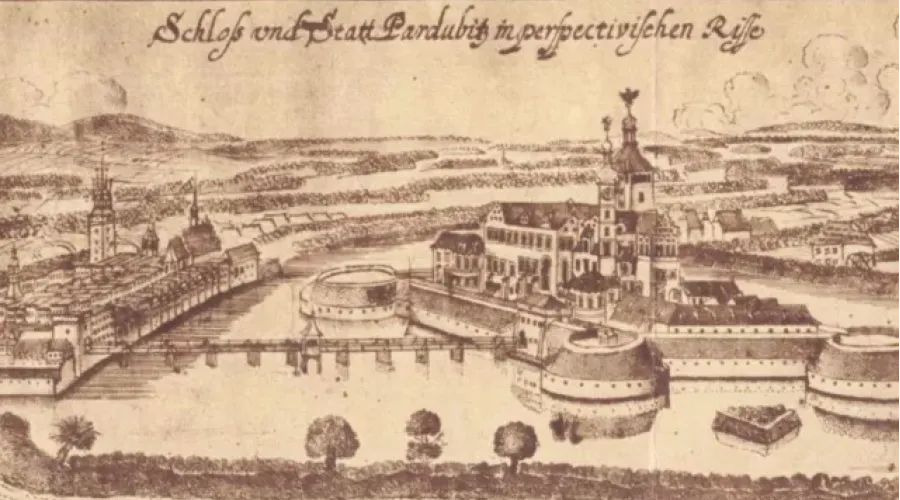 Schloß vnd Statt Pardubitz in perspectivischen Risse